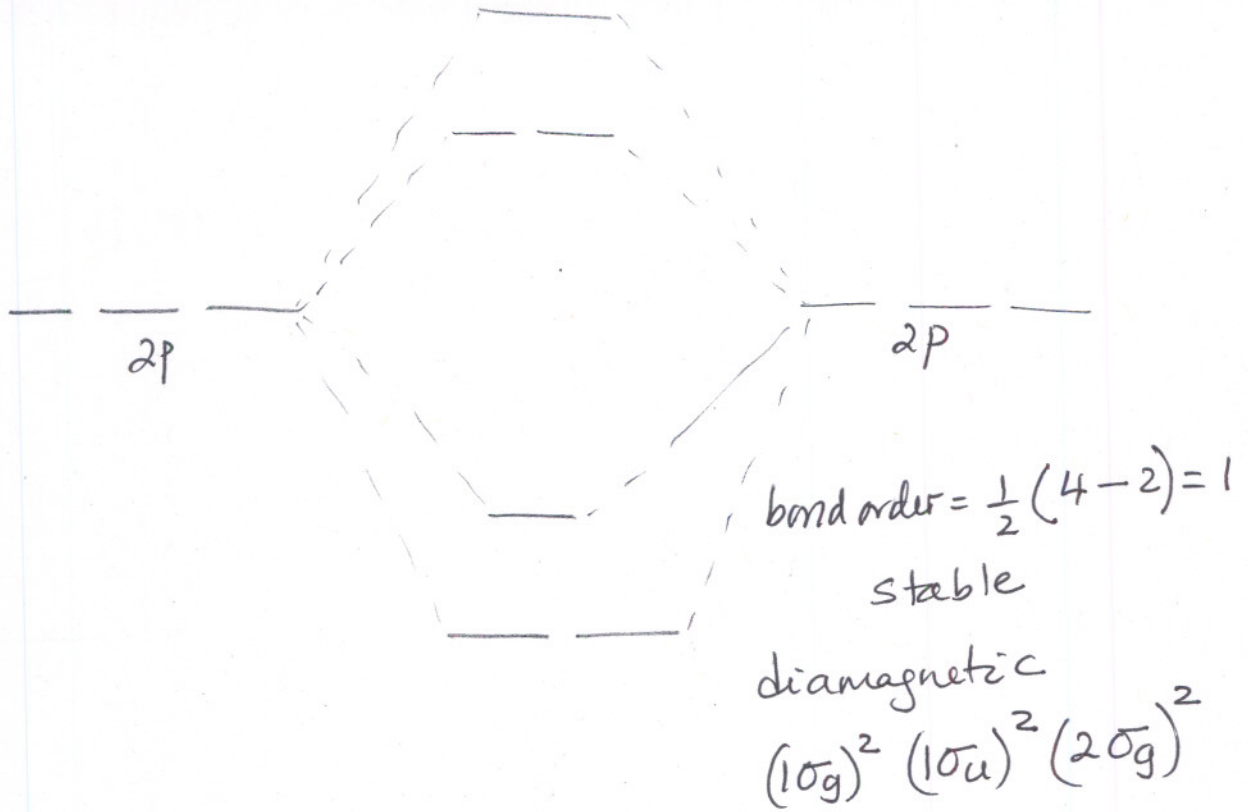 2p 2p
bond order = 1/2 (4 - 2) = 1
stable
diamagnetic
(1σg)² (1σu)² (2σg)²